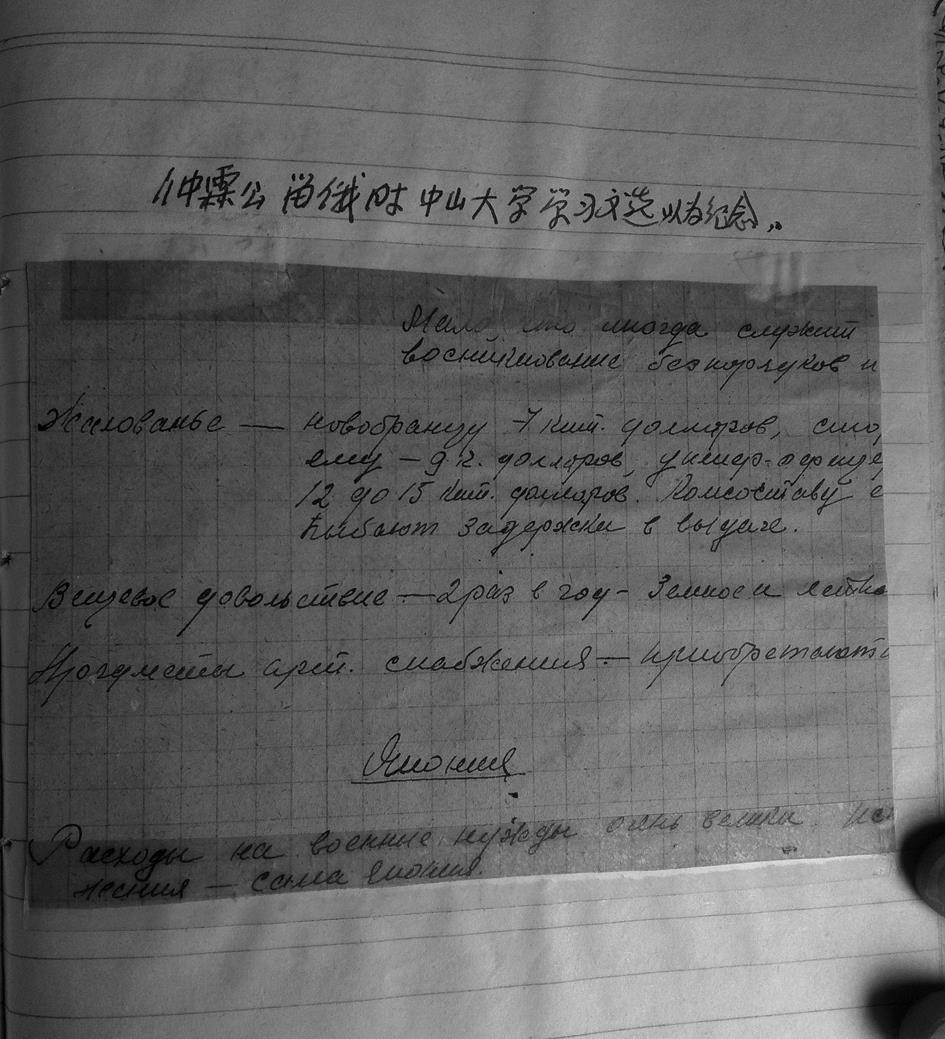 仲霖公留俄时中山大学学习文选以为纪念..
Мало иногда служит
восникновение беспорядков и
Жалованье — новобранцу 7 кит. долларов,
ему — 9 к. долларов, унтер-офице
12 до 15 кит. долларов. Комсоставу с
бывают задержки в выдаче.
Вещевое довольствие — 2 раз в год - Зимнее и летне
Предметы арт. снабжения — приобретают
Япония
Расходы на военные нужды очень велики.
жения — сама Япония.